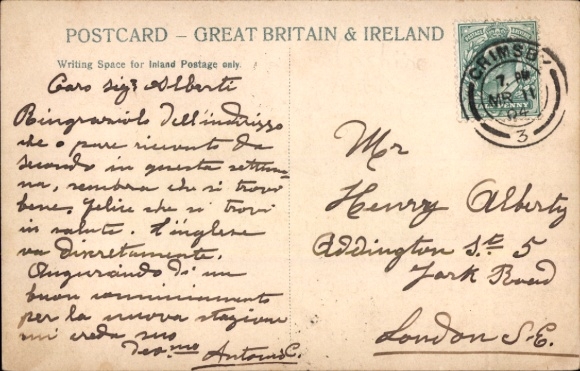 POSTCARD – GREAT BRITAIN & IRELAND
Writing Space for Inland Postage only.
Caro Sigr Alberti
Ringraziolo dell'indirizzo
che o pure ricevuto da
Secondo in questa settima
na, sembra che si trovi
bene, felice che si trovi
in salute. L'inglese
va discretamente.
Augurando di un
buon cominciamento
per la nuova stazione
mi creda suo
Devmo Antonio C.
GRIMSBY
MR 11
3
HALFPENNY
Mr
Henry Alberty
Addington St. 5
York Road
London S.E.